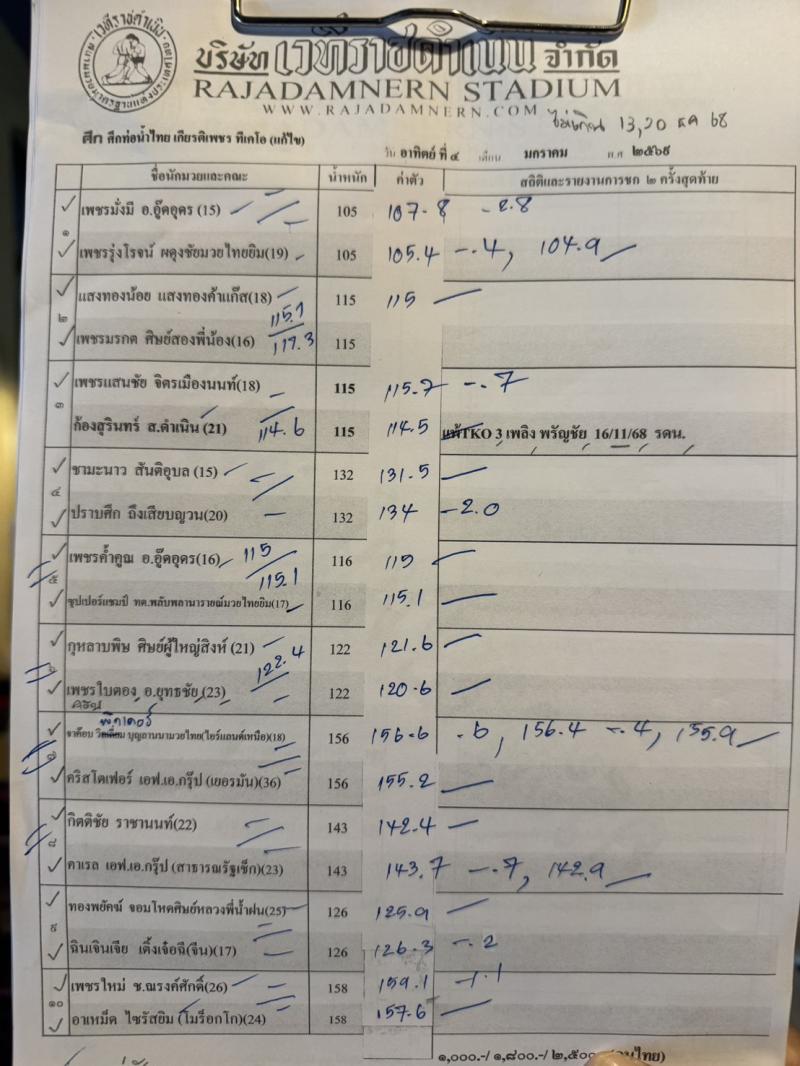 บริษัท เวทีราชดำเนิน จำกัด
RAJADAMNERN STADIUM
WWW.RAJADAMNERN.COM
13,20 ธค 68
ศึก ศึกท่อน้ำไทย เกียรติเพชร ทีเคโอ (แก้ไข)
วัน อาทิตย์ ที่ ๔ เดือน มกราคม พ.ศ ๒๕๖๙
ชื่อนักมวยและคณะ น้ำหนัก ค่าตัว สถิติและรายงานการชก ๒ ครั้งสุดท้าย
๑
เพชรมั่งมี อ.อู๊ดอุดร (15) 105 107.8 -2.8
เพชรรุ่งโรจน์ ผดุงชัยมวยไทยยิม(19) 105 105.4 -.4, 104.9
๒
แสงทองน้อย แสงทองค้าแก๊ส(18) 115 115
115.7
เพชรมรกต ศิษย์สองพี่น้อง(16) 117.3 115
๓
เพชรแสนชัย จิตรเมืองนนท์(18) 115 115.7 -.7
ก้องสุรินทร์ ส.ดำเนิน (21) 114.6 115 114.5 แพ้TKO 3 เพลิง พรัญชัย 16/11/68 รดน.
๔
ชามะนาว สันติอุบล (15) 132 131.5
ปราบศึก ถึงเสียบญวน(20) 132 134 -2.0
๕
เพชรค้ำคูณ อ.อู๊ดอุดร(16) 115 116 115
115.1
ซุปเปอร์แชมป์ ทต.พลับพลานารายณ์มวยไทยยิม(17) 116 115.1
๖
กุหลาบพิษ ศิษย์ผู้ใหญ่สิงห์ (21) 122 121.6
122.4
เพชรใบตอง อ.ยุทธชัย (23) 122 120.6
๗
จาค็อบ บุญลานนามวยไทย(ไอร์แลนด์เหนือ)(18) 156 156.6 -.6, 156.4 -.4, 155.9
คริสโตเฟอร์ เอฟ.เอ.กรุ๊ป (เยอรมัน)(36) 156 155.2
๘
กิตติชัย ราชานนท์(22) 143 142.4
คาเรล เอฟ.เอ.กรุ๊ป (สาธารณรัฐเช็ก)(23) 143 143.7 -.7, 142.9
๙
ทองพยัคฆ์ จอมโหดศิษย์หลวงพี่น้ำฝน(25) 126 125.9
ฉินเจินเจีย เติ้งเจ๋อฉี(จีน)(17) 126 126.3 -.2
๑๐
เพชรใหม่ ช.ณรงค์ศักดิ์(26) 158 159.1 -1.1
อาเหม็ด ไซรัสยิม (โมร็อกโก)(24) 158 157.6
๑,๐๐๐.-/ ๑,๘๐๐.-/ ๒,๕๐๐